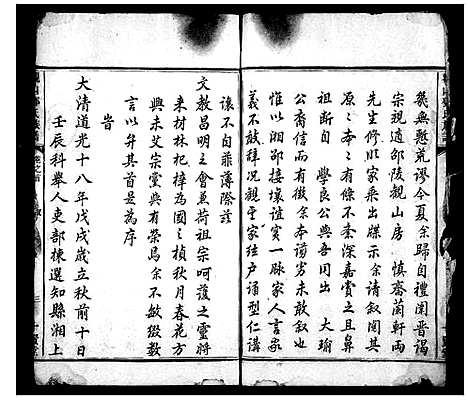 幾無憖荒謬今夏余歸自禮闈晉謁
宗祝適邵陵観山房 慎齋蘭軒両
先生修明家乘以 示余請叙閱其
原原本本有條不紊深嘉賞之且鼻
祖斷自 學良公與吾同 大瑜
公書信而有徵余本譾劣未敢叙也
惟以湘鄉接壤誼實一脉家人言家
義不敢辞况観乎家絃户誦型仁講
讓不自菲薄際兹
文教昌明之會蒐荷祖宗呵護之靈將
来材林杞梓為國之楨秋月春花方
興未艾宗黨與有榮焉余不敏綴數
言以弁其首是為序
峕
大清道光十八年戊戌歲立秋前十日
壬辰科舉人吏部棟選知縣湘上